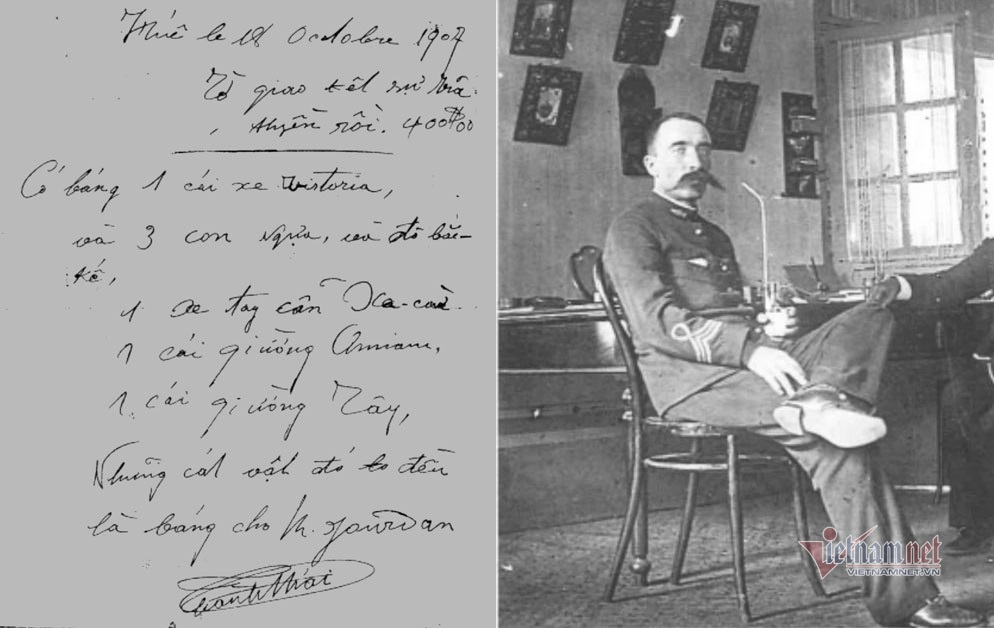 Huê le 18 Octobre 1907
Tờ giao kêt sự
thyền rồi. 400$00
Có báng 1 cái xe victoria,
và 3 con ngựa, và đồ bắt-
kế,
1 xe tay cẩn Xa-cừ.
1 cái giường Annam,
1 cái giường Tây,
Nhưng các vật đó to đều
là báng cho M. Jourdan
Thành Thái
vietnamnet
VIETNAMNET.VN